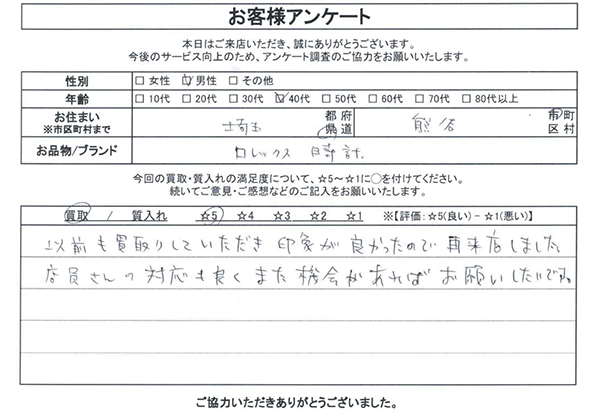 お客様アンケート
本日はご来店いただき、誠にありがとうございます。
今後のサービス向上のため、アンケート調査のご協力をお願いいたします。
性別 □女性 ☑男性 □その他
年齢 □10代 □20代 □30代 ☑40代 □50代 □60代 □70代 □80代以上
お住まい ※市区町村まで 埼玉 都 府 県 道 熊谷 市 町 区 村
お品物/ブランド ロレックス 時計
今回の買取・質入れの満足度について、☆5～☆1に○を付けてください。
続いてご意見・ご感想などのご記入をお願いいたします。
買取 / 質入れ ☆5 ☆4 ☆3 ☆2 ☆1 ※【評価：☆5(良い) - ☆1(悪い)】
以前も買取りしていただき 印象が良かったので 再来店しました。
店員さんの対応も良く また機会があればお願いしたいですね
ご協力いただきありがとうございました。